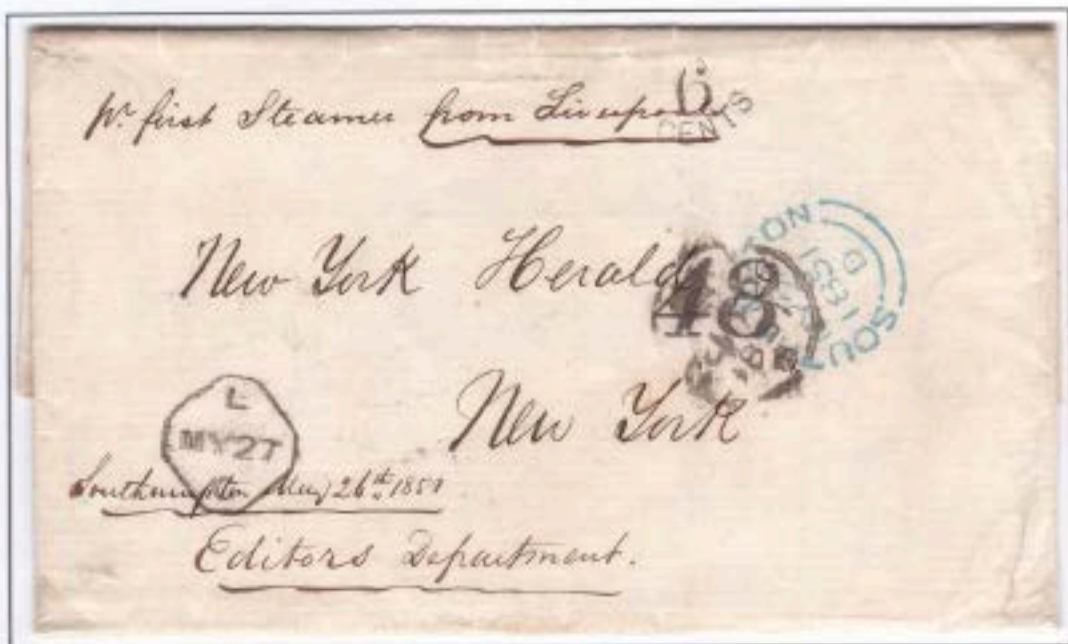 pr. first Steamer from Liverpool
6
CENTS
New York Herald
48
SOUTHAMPTON
1851
New York
L
MY 27
Southampton May 26th. 1851
Editors Department.